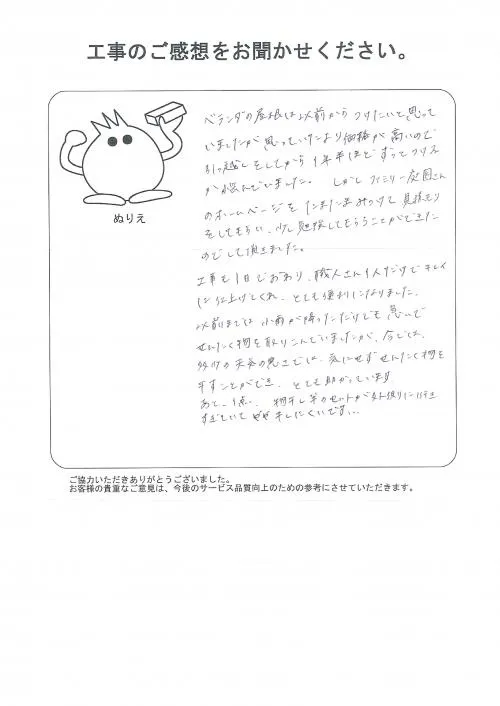 工事のご感想をお聞かせください。
ベランダの屋根は以前からつけたいと思って
いましたが思っていたより価格が高いので
引っ越しをしてから1年半ほどずっとつけるか
悩んでいました。しかしファミリー庭園さん
のホームページをたまたまみつけて見積もり
をしてもらい、少し勉強してもらうことができた
のでして頂きました。
工事も1日でおわり、職人さん1人だけでキレイ
に仕上げてくれ、とても便利になりました。
以前までは小雨が降っただけでも急いで
せんたく物を取りこんでいましたが、今では、
多少の天気の悪さでは、気にせずせんたく物を
干すことができ、とても助かっています
あと、1点、物干し竿のセットが外側に行き
すぎていてやや干しにくいです…
ぬりえ
ご協力いただきありがとうございました。
お客様の貴重なご意見は、今後のサービス品質向上のための参考にさせていただきます。